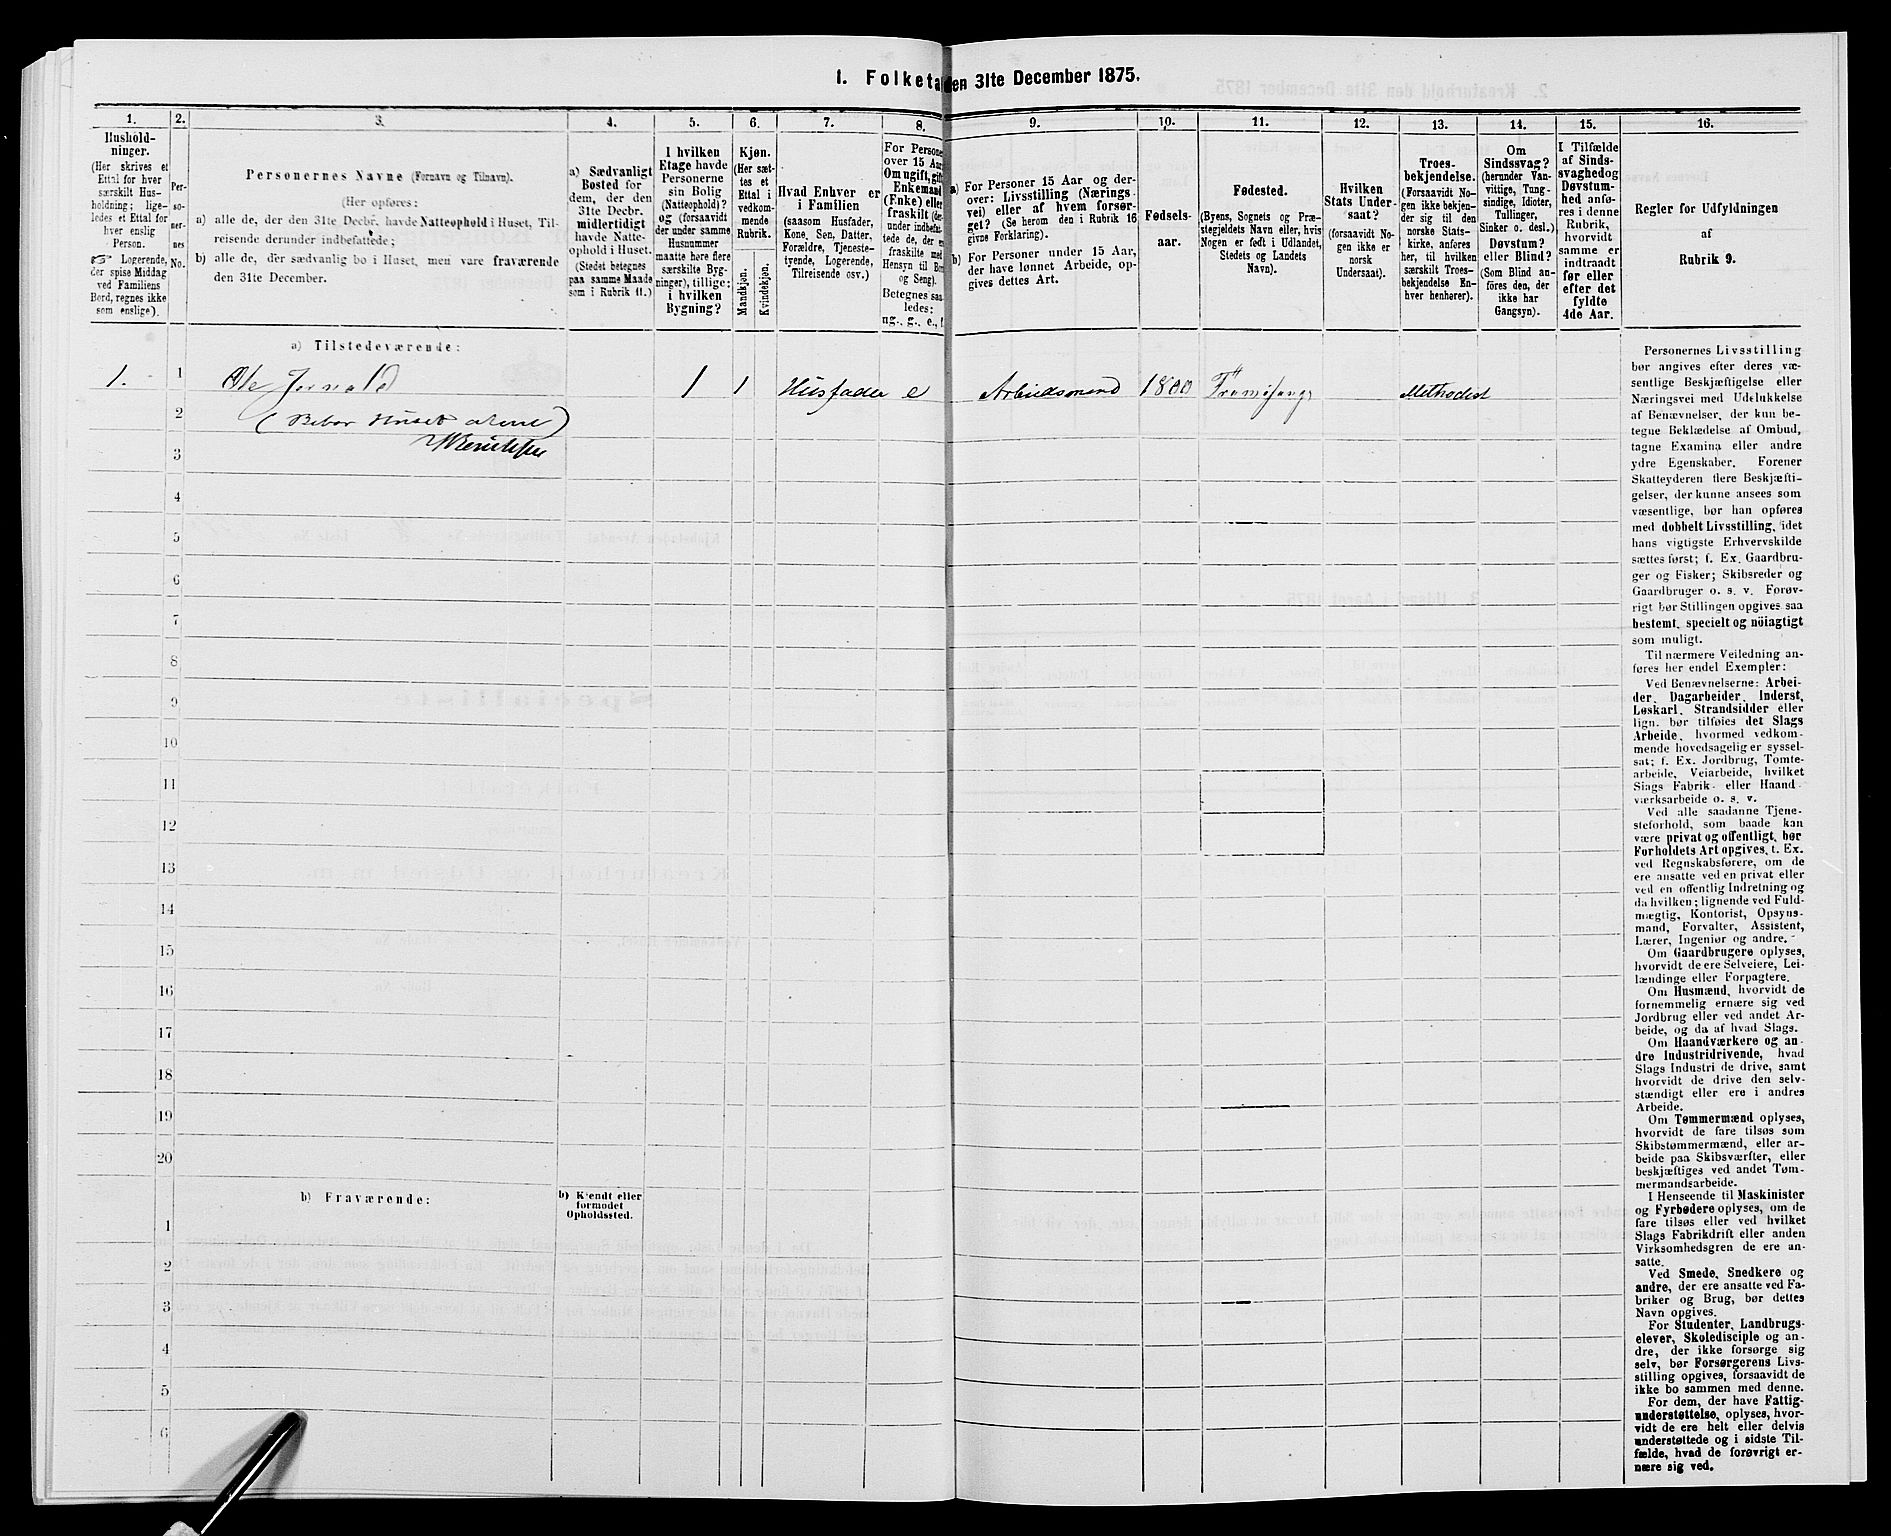 1. Folketa
en 31te December 1875.
1.
2.
3.
4.
5.
6.
7.
8.
9.
10.
11.
12.
13.
14.
15.
16.
Hushold-
ninger.
(Her skrives et
Ettal for hver
særskilt Hus-
holdning; lige-
ledes et Ettal for
hver enslig
Person.
☞ Logerende,
der spise Middag
ved Familiens
Bord, regnes ikke
som enslige).
Per-
so-
ner-
nes
No.
Personernes Navne (Fornavn og Tilnavn).
(Her opføres:
a) alle de, der den 31te Decbr. havde Natteophold i Huset, Til-
reisende derunder indbefattede;
b) alle de, der sædvanlig bo i Huset, men vare fraværende
den 31te December.
a) Sædvanligt
Bosted for
dem, der den
31te Decbr.
midlertidigt
havde Natte-
ophold i Huset.
(Stedet betegnes
paa samme Maade
som i Rubrik 11.)
I hvilken
Etage havde
Personerne
sin Bolig
(Natteophold)?
og (forsaavidt
der under samme
Husnummer
maatte høre flere
særskilte Byg-
ninger), tillige:
i hvilken
Bygning?
Kjøn.
(Her sæt-
tes et
Ettal i
vedkom-
mende
Rubrik.
Mandkjøn.
Kvindekjøn.
Hvad Enhver er
i Familien
(saasom Husfader,
Kone, Søn, Datter,
Forældre, Tjeneste-
tyende, Logerende,
Tilreisende osv.)
For Persone
over 15 Aar
Om ugift, gift
Enkemand
(Enke) eller
fraskilt (der-
under indbefat-
tede de, der er
fraskilte med
Hensyn til Bor
og Seng).
Betegnes saa-
ledes:
ug., g., e., f.
a) For Personer 15 Aar og der-
over: Livsstilling (Nærings
vei) eller af hvem forsør-
get? (Se herom den i Rubrik 16
givne Forklaring).
b) For Personer under 15 Aar,
der have lønnet Arbeide, op-
gives dettes Art.
Fødsels-
aar.
Fødested.
(Byens, Sognets og Præ-
stegjeldets Navn eller, hvis
Nogen er født i Udlandet,
Stedets og Landets
Navn).
Hvilken
Stats Under-
saat?
(forsaavidt No-
gen ikke er
norsk
Undersaat).
Troes-
bekjendelse.
(Forsaavidt No-
gen ikke bekjen-
der sig til den
norske Stats-
kirke, anføres
her, til hvilken
særskilt Troes-
bekjendelse En-
hver henhører).
Om
Sindssvag?
(herunder Van-
vittige, Tung-
sindige, Idioter,
Tullinger,
Sinker o. desl.)
Døvstum?
eller Blind?
(Som Blind an-
føres den, der
ikke har
Gangsyn).
I Tilfælde
af Sinds-
svaghed og
Døvstum-
hed anfø-
res i denne
Rubrik,
hvorvidt
samme er
indtraadt
før eller
efter det
fyldte
4de Aar.
Regler for Udfyldningen
af
Rubrik 9.
a) Tilstedeværende:
1. 1 Ole 1 1 Husfader e Arbeidsmand 1800 Methodist
2 (Bebor Huset alene)
3
4
5
6
7
8
9
10
11
12
13
14
15
16
17
18
19
20
b) Fraværende:
b) Kjendt eller
formodet
Opholdssted.
1
2
3
4
5
6
Personernes Livsstilling
bør angives efter deres væ-
sentlige Beskjæftigelse eller
Næringsvei med Udelukkelse
af Benævnelser, der kun be-
tegne Beklædelse af Ombud,
tagne Examina eller andre
ydre Egenskaber. Forener
Skatteyderen flere Beskjæfti-
gelser, der kunne ansees som
væsentlige, bør han opføres
med dobbelt Livsstilling, idet
hans vigtigste Erhvervskilde
sættes først; f. Ex. Gaardbru-
ger og Fisker; Skibsreder og
Gaardbruger o. s. v. Forøv-
rigt bør Stillingen opgives saa
bestemt, specielt og nöiagtigt
som muligt.
Til nærmere Veiledning an-
føres her endel Exempler:
Ved Benævnelserne: Arbei-
der, Dagarbeider, Inderst,
Løskarl, Strandsidder eller
lign. bør tilføies det Slags
Arbeide, hvormed vedkom-
mende hovedsagelig er syssel-
sat; f. Ex. Jordbrug, Tomte-
arbeide, Veiarbeide, hvilket
Slags Fabrik- eller Haand-
værksarbeide o. s. v.
Ved alle saadanne Tjene-
steforhold, som baade kan
være privat og offentligt, bør
Forholdets Art opgives, f. Ex.
ved Regnskabsførere, om de
ere ansatte ved en privat eller
ved en offentlig Indretning og
da hvilken; lignende ved Fuld-
mægtig, Kontorist, Opsyns-
mand, Forvalter, Assistent,
Lærer, Ingeniør og andre.
Om Gaardbrugere oplyses,
hvorvidt de ere Selveiere, Lei-
lændinge eller Forpagtere.
Om Husmænd, hvorvidt de
fornemmelig ernære sig ved
Jordbrug eller ved andet Ar-
beide, og da af hvad Slags.
Om Haandværkere og an-
dre Industridrivende, hvad
Slags Industri de drive, samt
hvorvidt de drive den selv-
stændigt eller ere i andres
Arbeide.
Om Tømmermænd oplyses,
hvorvidt de fare tilsøs som
Skibstømmermænd, eller ar-
beide paa Skibsværfter, eller
beskjæftiges ved andet Tøm-
mermandsarbeide.
I Henseende til Maskinister
og Fyrbødere oplyses, om de
fare tilsøs eller ved hvilket
Slags Fabrikdrift eller anden
Virksomhedsgren de ere an-
satte.
Ved Smede, Snedkere og
andre, der ere ansatte ved Fa-
briker og Brug, bør dettes
Navn opgives.
For Studenter, Landbrugs-
elever, Skoledisciple og an-
dre, der ikke forsørge sig
selv, bør Forsørgerens Livs-
stilling opgives, forsaavidt de
ikke bo sammen med denne.
For dem, der have Fattig-
understøttelse, oplyses, hvor-
vidt de ere helt eller delvis
understøttede og i sidste Til-
fælde, hvad de forøvrigt er-
nære sig ved.